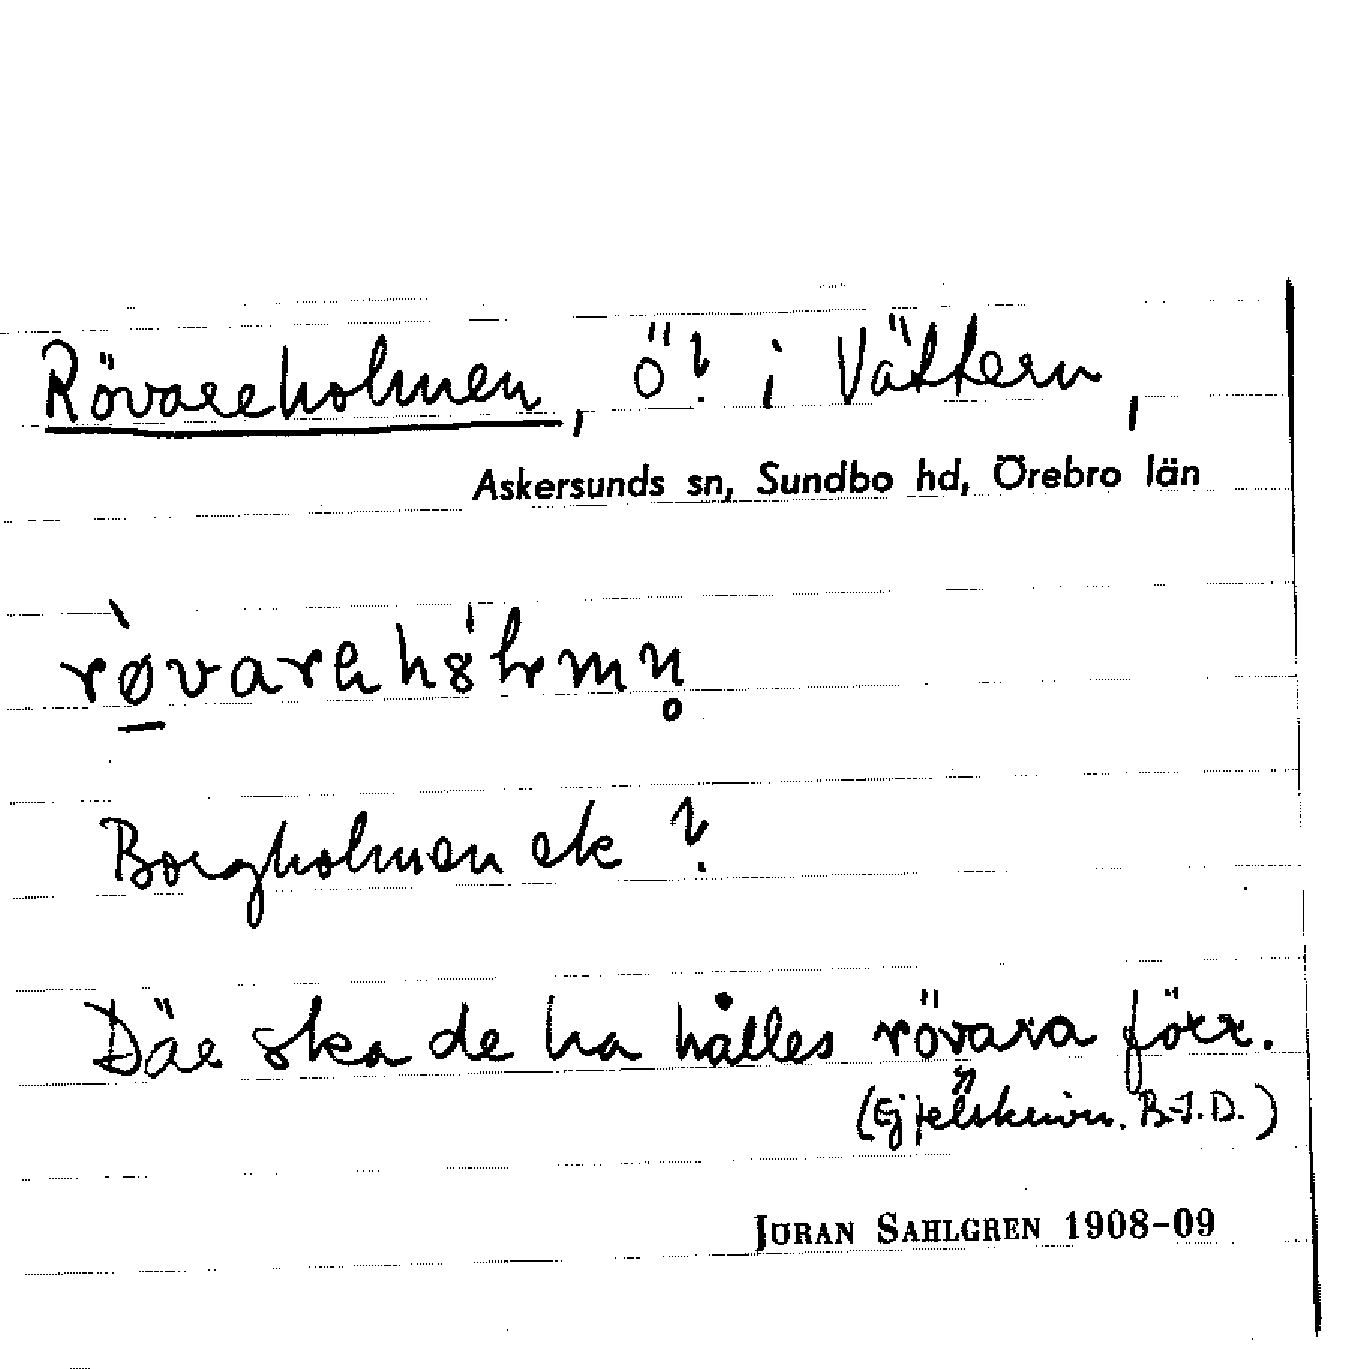 Rövareholmen, ö? i Vättern,
Askersunds sn, Sundbo hd, Örebro län
Borgholmen ek ?
Däe ska de ha hålles rövara förr.
(Ej B.I.D.)
JÖRAN SAHLGREN 1908-09